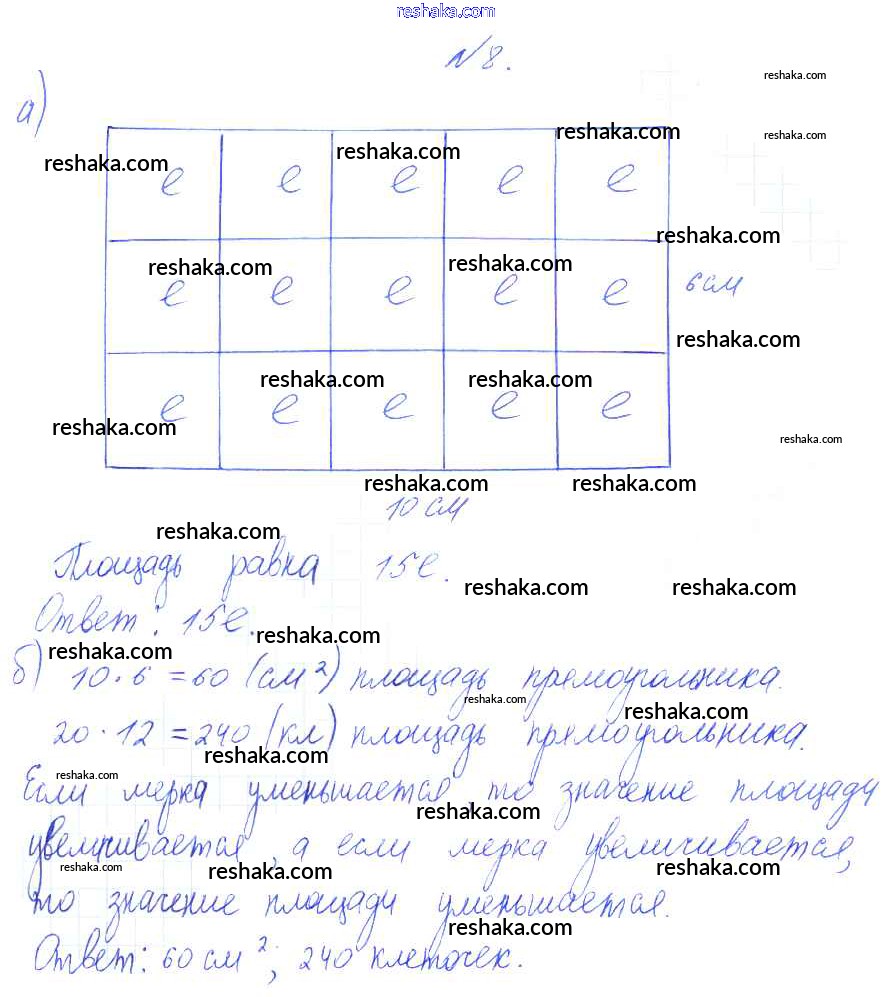 reshaka.com
№8.
reshaka.com
а)
reshaka.com
reshaka.com
reshaka.com
reshaka.com
е е е е е
reshaka.com
reshaka.com
reshaka.com
е е е е е
6 см
reshaka.com
reshaka.com
reshaka.com
е е е е е
reshaka.com
reshaka.com
reshaka.com
reshaka.com
10 см
reshaka.com
Площадь равна 15е.
reshaka.com
reshaka.com
Ответ: 15е.
reshaka.com
reshaka.com
б) 10 · 6 = 60 (см²) площадь прямоугольника.
reshaka.com
reshaka.com
20 · 12 = 240 (кл) площадь прямоугольника.
reshaka.com
reshaka.com
Если мерка уменьшается, то значение площади
reshaka.com
увеличивается, а если мерка увеличивается,
reshaka.com
reshaka.com
reshaka.com
то значение площади уменьшается.
reshaka.com
Ответ: 60 см²; 240 клеточек.